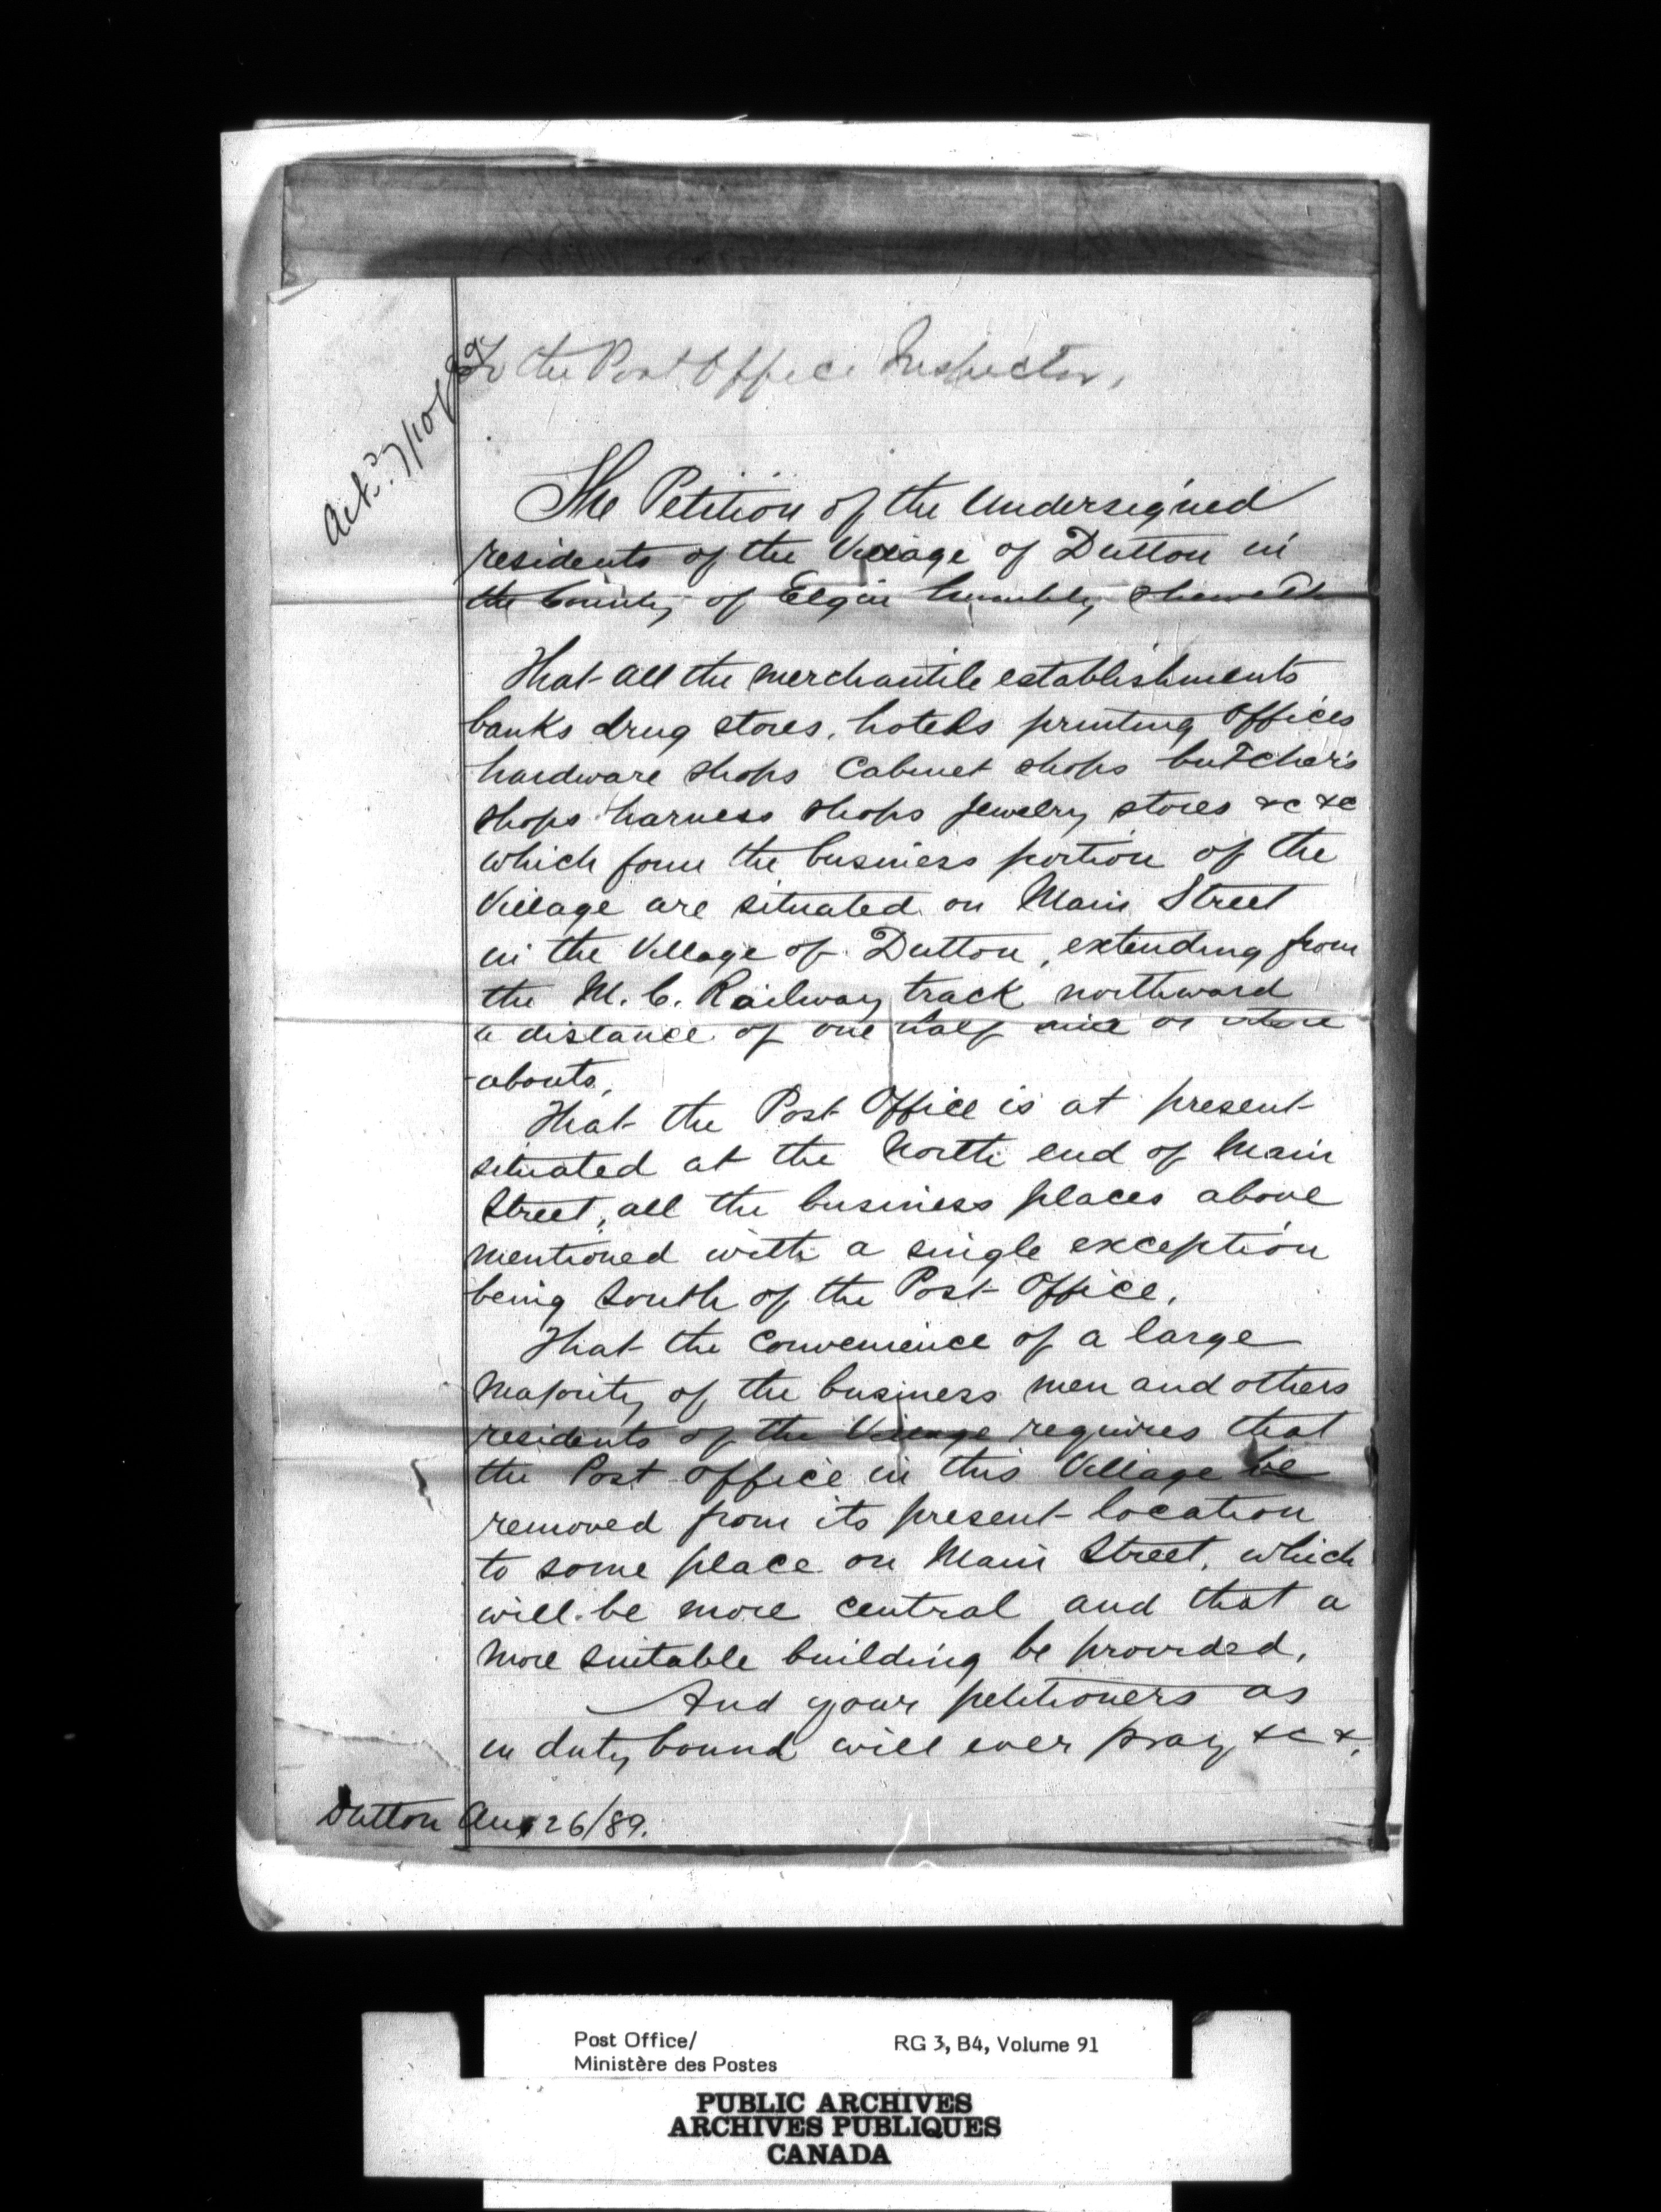 To the Post Office Inspector,
7/10/89
The Petition of the Undersigned
residents of the Village of Dutton in
the County of Elgin humbly sheweth
That all the merchantile establishments
banks drug stores, hotels printing offices
hardware shops Cabinet shops butcher's
shops harness shops Jewelry stores &c &c
which form the business portion of the
Village are situated on Main Street
in the Village of Dutton, extending from
the M. C. Railway track northward
a distance of one half mile or there
abouts,
That the Post Office is at present
situated at the North end of Main
Street, all the business places above
mentioned with a single exception
being South of the Post Office.
That the Convenience of a large
Majority of the business men and others
residents of the Village requires that
the Post office in this Village be
removed from its present location
to some place on Main Street, which
will be more central and that a
more suitable building be provided.
And your petitioners as
in duty bound will ever pray &c &.
Dutton Aug 26/89.
Post Office/ RG 3, B4, Volume 91
Ministère des Postes
PUBLIC ARCHIVES
ARCHIVES PUBLIQUES
CANADA